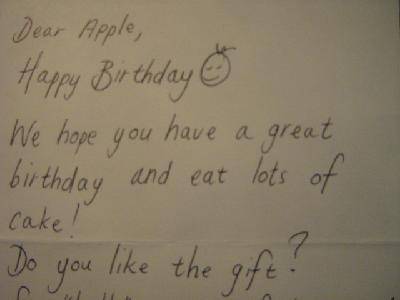 Dear Apple,
Happy Birthday
We hope you have a great
birthday and eat lots of
cake!
Do you like the gift?